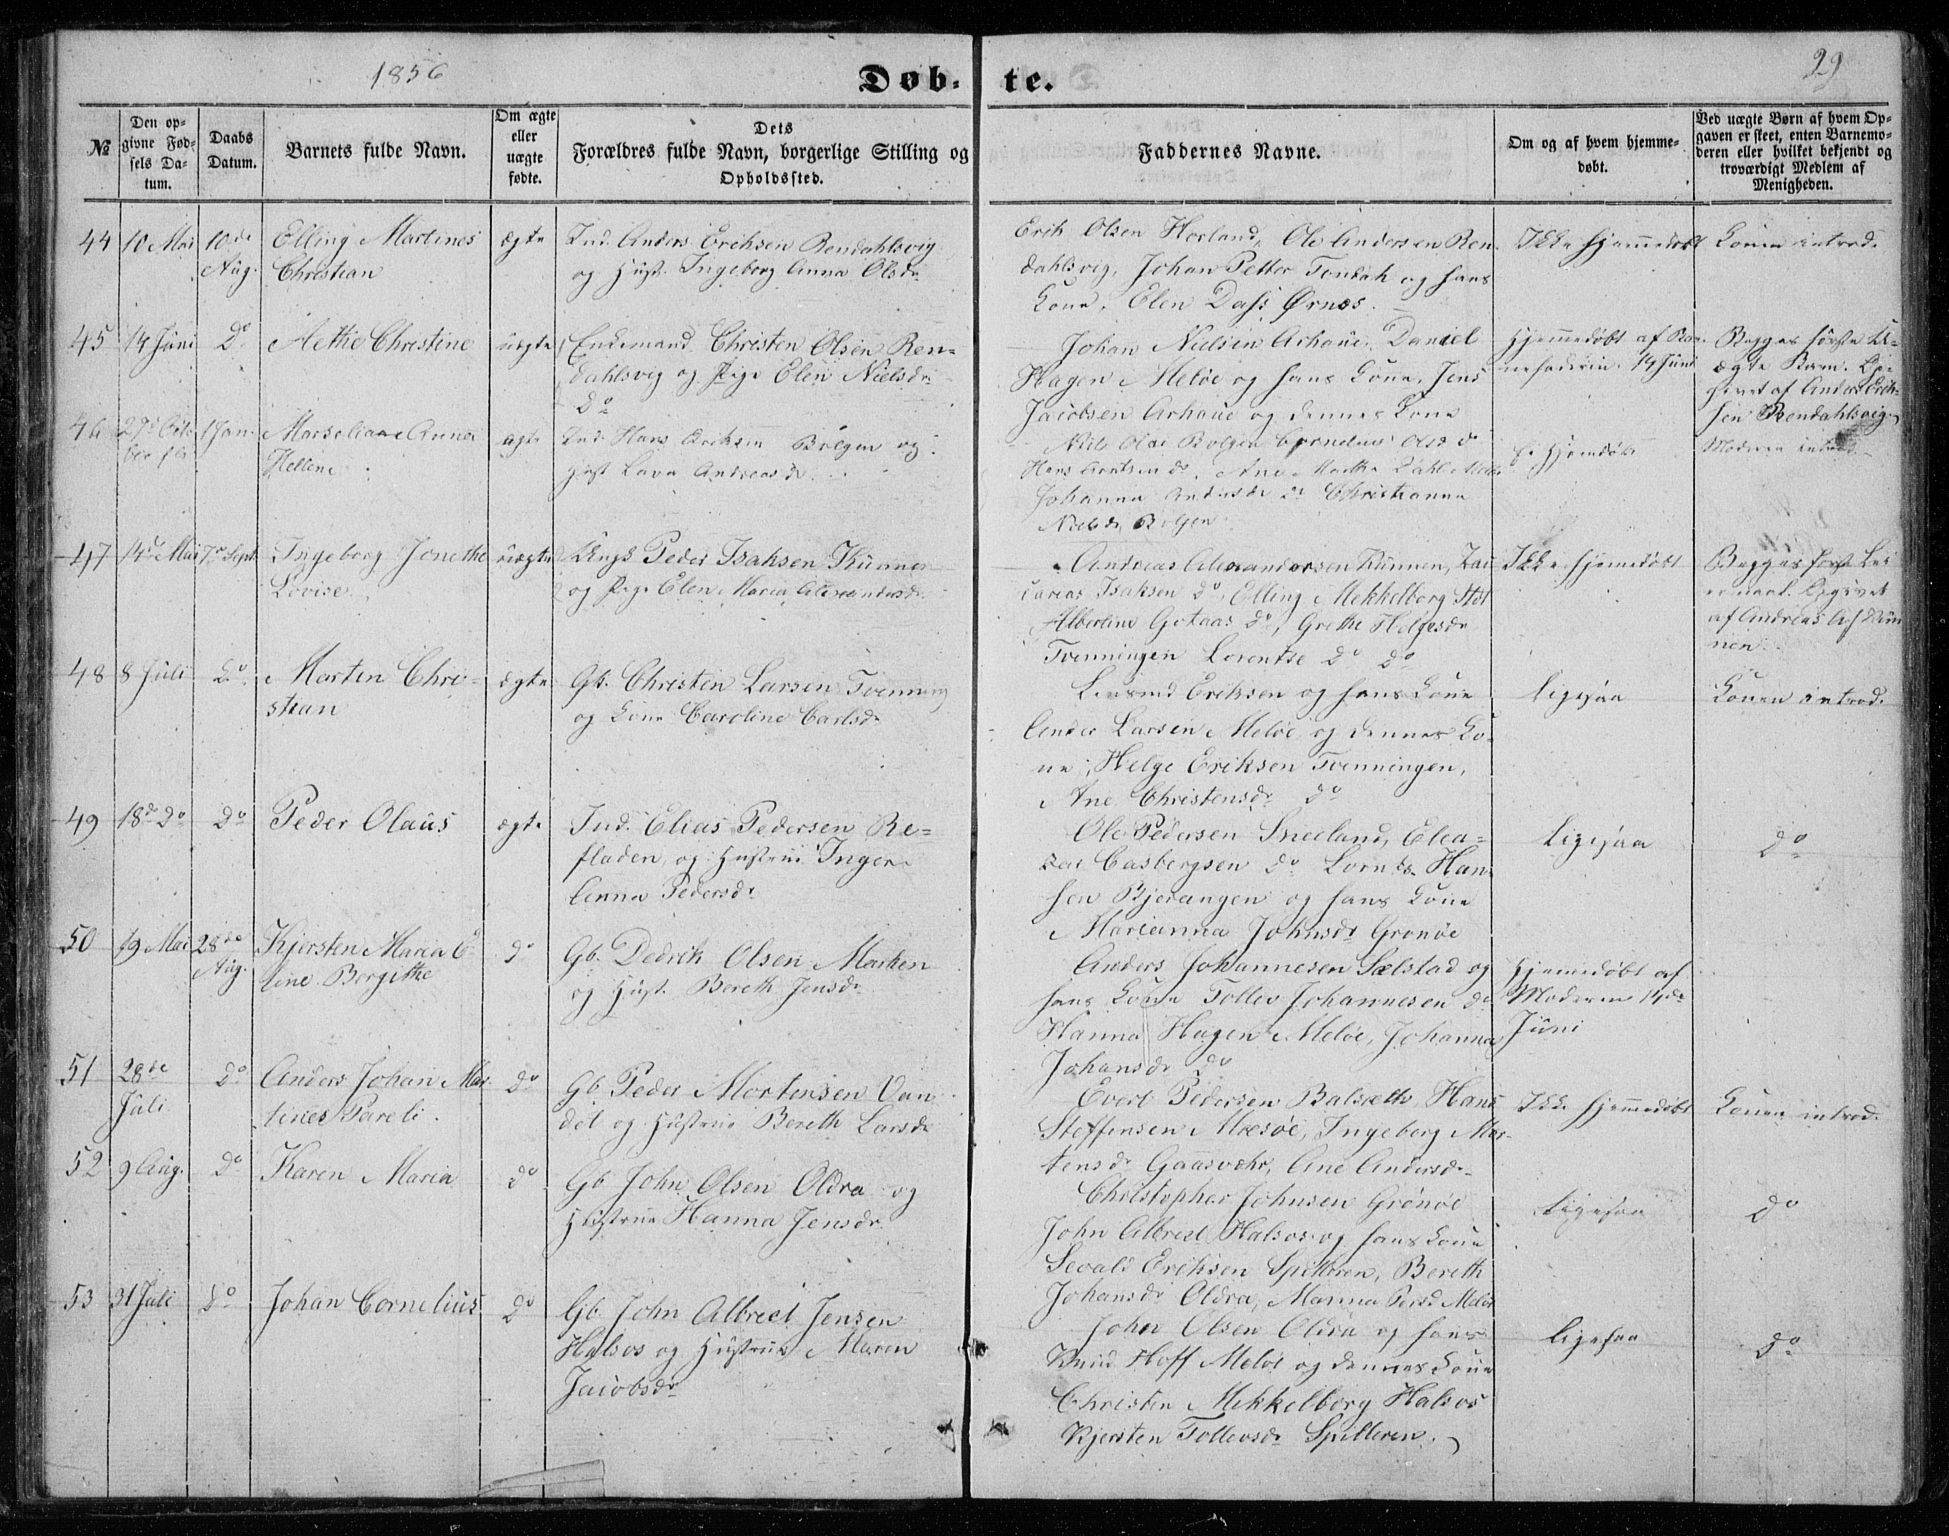 1856
Døb-
te.
29
№
Den op-
givne Fød-
sels Da-
tum.
Daabs
Datum.
Barnets fulde Navn.
Om ægte
eller
uægte
fødte.
Dets
Forældres fulde Navn, borgerlige Stilling og
Opholdssted.
Faddernes Navne.
Om og af hvem hjemme-
døbt.
Ved uægte Børn af hvem Op-
gaven er skeet, enten Barnemo-
deren eller hvilket bekjendt og
troværdigt Medlem af
Menigheden.
44
10 Mai
10de
Aug.
Elling Martines
Christian
ægte
Ind. Anders Eriksen Rendahlsvig
og Hust. Ingeborg Anna Olsdr
Erik Olsen Horland, Ole Andersen Ren-
dahlsvig, Johan Petter Tondah og hans
Kone, Elen Dass Ørnes.
Ikke hjemmedøbt
Konen introd.
45
14 Juni
Do
Methe Christine
uægte
Enkemand Christen Olsen Ren-
dahlsvig og Pige Elen Nielsdr
Do
Johan Nielsen Arhaue, Daniel
Hagen Meløe og hans Kone, Jens
Jacobsen Arhaue og dennes Kone
Hjemmedøbt af Bar-
nefaderen 14 Juni
Begges første U-
ægte Barn. Op-
givet af Anders Erik-
sen Rendahlsvig
46
1 Jan.
Marseliane Anna
Hellene
ægte
Ind. Hans Eriksen Bolgen og
Hust Lava Andreasdr
Niels Olai Bolgen Cornelius Olsd do
Hans Arntsen do, Ane Martha Dahl Meløe
Johanna Andersdr do Christianna
Nielsdr Bolgen
Moderen introd.
47
14de Mai
7de Sept
Ingeborg Jonethe
Lovise
uægte
Ungk Peder Isaksen Kunnen
og Pige Elen Maria Alexandersdr
Andreas Alexandersen Kunnen, Zac-
carias Isaksen do, Elling Mekkelborg Støt
Albertine Gotaas do, Grethe Helgesdr
Tvenningen Lorentse do do
Ikke hjemedøbt
Begges første Lei
ermaal. Opgivet
af Andreas Al. Kun
nen
48
8 Juli
Do
Morten Chri-
stian
ægte
Gb. Christen Larsen Tvenning
og Kone Caroline Carlsdr
Eriksen og hans Kone
Ander Larsen Meløe og dennes Ko-
ne, Helge Eriksen Tvenningen,
Ane Christensdr do
ligesaa
Konen introd.
49
18de Do
Do
Peder Olaus
ægte
Ind. Elias Pedersen Re-
fladen og Hustrue Inger
Anna Pedersdr
Ole Pedersen Sneeland, Elea-
zar Casbergsen do Lornts Han-
sen Bjerangen og hans Kone
Marianna Johnsdr Gronøe
ligesaa
Do
50
19 Mai
28de
Aug.
Kjersten Maria E-
line Bergithe
do
Gb. Dedrik Olsen Marken
og Hust. Bereth Jensdr
Anders Johannesen Sælstad og
hans Kone Tollev Johannesen do
Hanna Hagen Meløe, Johanna
Johansdr do
Hjemmedøbt af
Moderen 14de
Juni
51
28de
Juli
Do
Anders Johan Mar-
tines Pareli
Do
Gb. Peder Mortensen Van
det og Hustrue Bereth Larsdr
Evert Pedersen Balsæth, Hans
Steffensen Mæsøe, Ingeborg Mor-
tensdr Gaasvær, Ane Andersdr
Ikke hjemmedøbt
Konen introd.
52
9 Aug.
Do
Karen Maria
do
Gb John Olsen Oldra og
Hustrue Hanna Jensdr
Christopher Johnsen Grønøe
John Albrect Halsos og hans Kone
Sevald Eriksen Spilleren, Bereth
Johansdr Oldra, Manna Persd Meløe
ligesaa
Do
53
31 Juli
Do
Johan Cornelius
Do
Gb John Albrect Jensen
Halsos og Hustrue Maren
Jacobsdr
John Olsen Oldra og hans
Knud Hoff Meløe og dennes Kone
Christen Mekkelborg Halsos
Kjersten Tollevsdr Spilleren.
ligesaa
Do